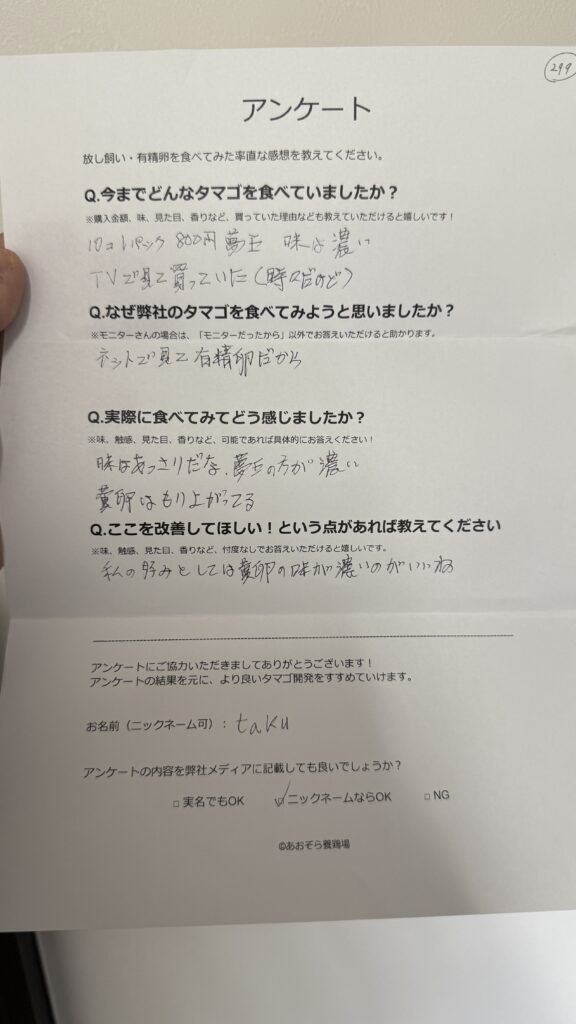 299
アンケート
放し飼い・有精卵を食べてみた率直な感想を教えてください。
Q.今までどんなタマゴを食べていましたか？
※購入金額、味、見た目、香りなど、買っていた理由なども教えていただけると嬉しいです！
10コ1パック 800円 夢王 味は濃い
TVで見て買っていた（時々だけど）
Q.なぜ弊社のタマゴを食べてみようと思いましたか？
※モニターさんの場合は、「モニターだったから」以外でお答えいただけると助かります。
ネットで見て 有精卵だから
Q.実際に食べてみてどう感じましたか？
※味、触感、見た目、香りなど、可能であれば具体的にお答えください！
味はあっさりだな、夢王の方が濃い
黄卵はもり上がってる
Q.ここを改善してほしい！という点があれば教えてください
※味、触感、見た目、香りなど、忖度なしでお答えいただけると嬉しいです。
私の好みとしては黄卵の味が濃いのがいいね
アンケートにご協力いただきましてありがとうございます！
アンケートの結果を元に、より良いタマゴ開発をすすめていけます。
お名前（ニックネーム可）：taku
アンケートの内容を弊社メディアに記載しても良いでしょうか？
□ 実名でもOK ☑ニックネームならOK □ NG
©あおぞら養鶏場